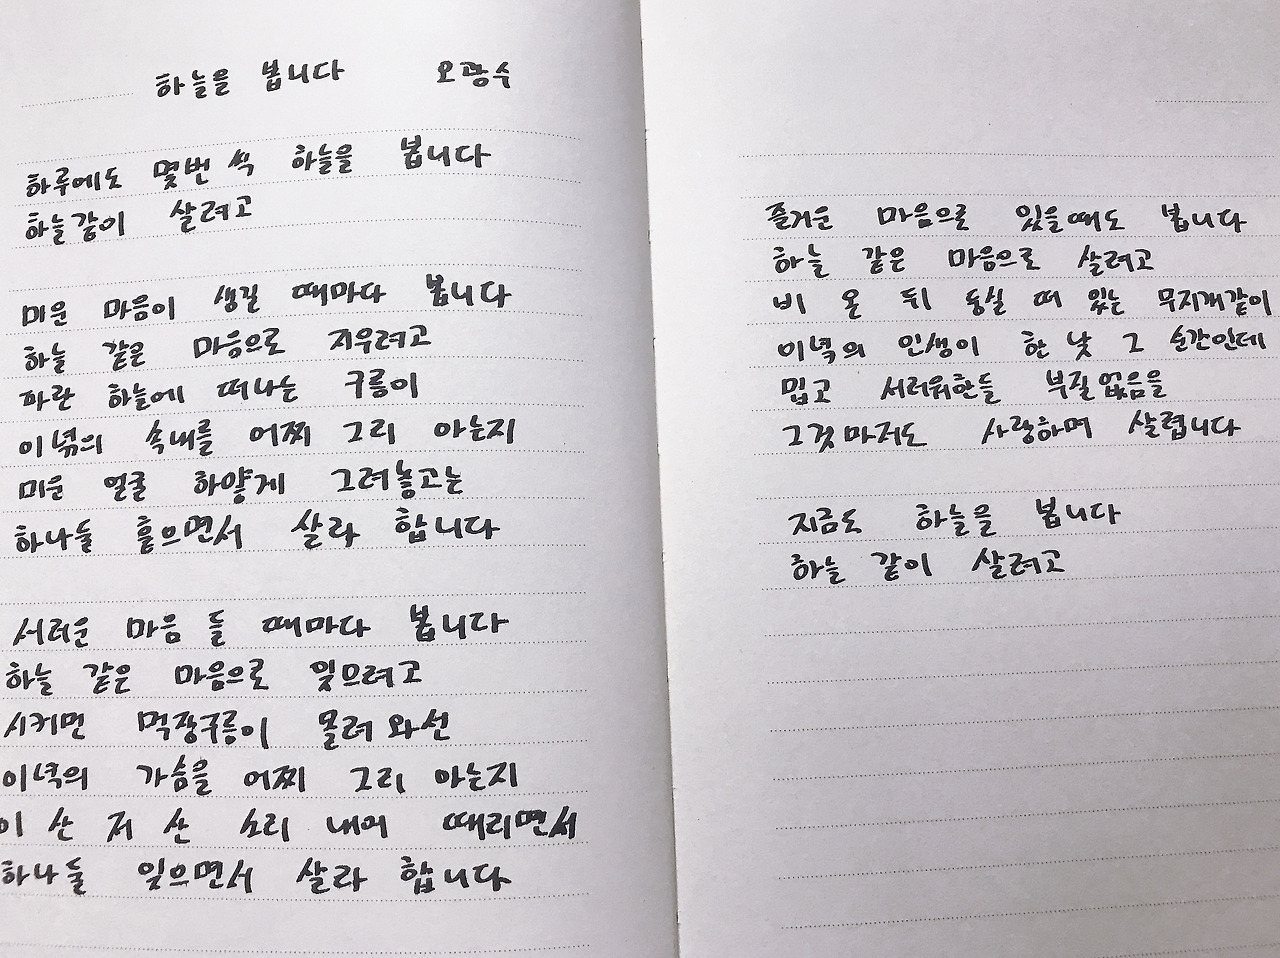 하늘을 봅니다 오광수
하루에도 몇번 씩 하늘을 봅니다
하늘같이 살려고
미운 마음이 생길 때마다 봅니다
하늘 같은 마음으로 지우려고
파란 하늘에 떠나는 구름이
이녁의 속내를 어찌 그리 아는지
미운 얼굴 하얗게 그려놓고는
하나둘 흩으면서 살라 합니다
서러운 마음 들 때마다 봅니다
하늘 같은 마음으로 잊으려고
시커먼 먹장구름이 몰려 와선
이녁의 가슴을 어찌 그리 아는지
이 산 저 산 소리 내어 때리면서
하나둘 잊으면서 살라 합니다
즐거운 마음으로 있을때도 봅니다
하늘 같은 마음으로 살려고
비 온 뒤 둥실 떠 있는 무지개같이
이녁의 인생이 한 낮 그 순간인데
밉고 서러워한들 부질없음을
그것마저도 사랑하며 살렵니다
지금도 하늘을 봅니다
하늘 같이 살려고